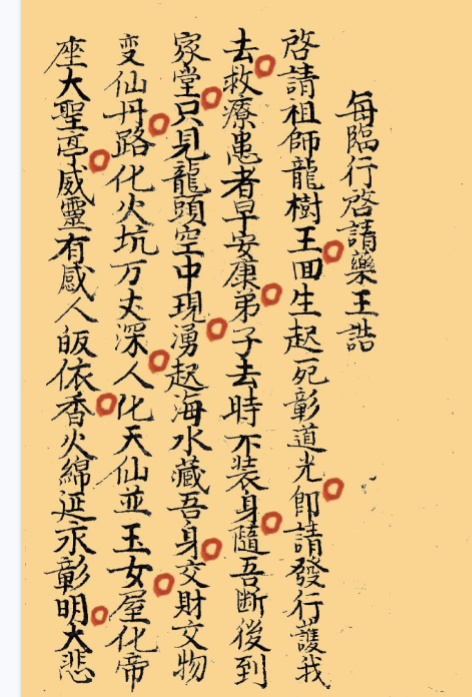 每臨行啓請藥王誥
啓請祖師龍樹王回生起死彰道光即請發行護我
去救療患者早安康弟子去時不裝身隨吾斷後到
家堂只見龍頭空中現湧起海水藏吾身交財交物
变仙丹路化火坑万丈深人化天仙並玉女屋化帝
座大聖亭威靈有感人皈依香火綿延永彰明大悲